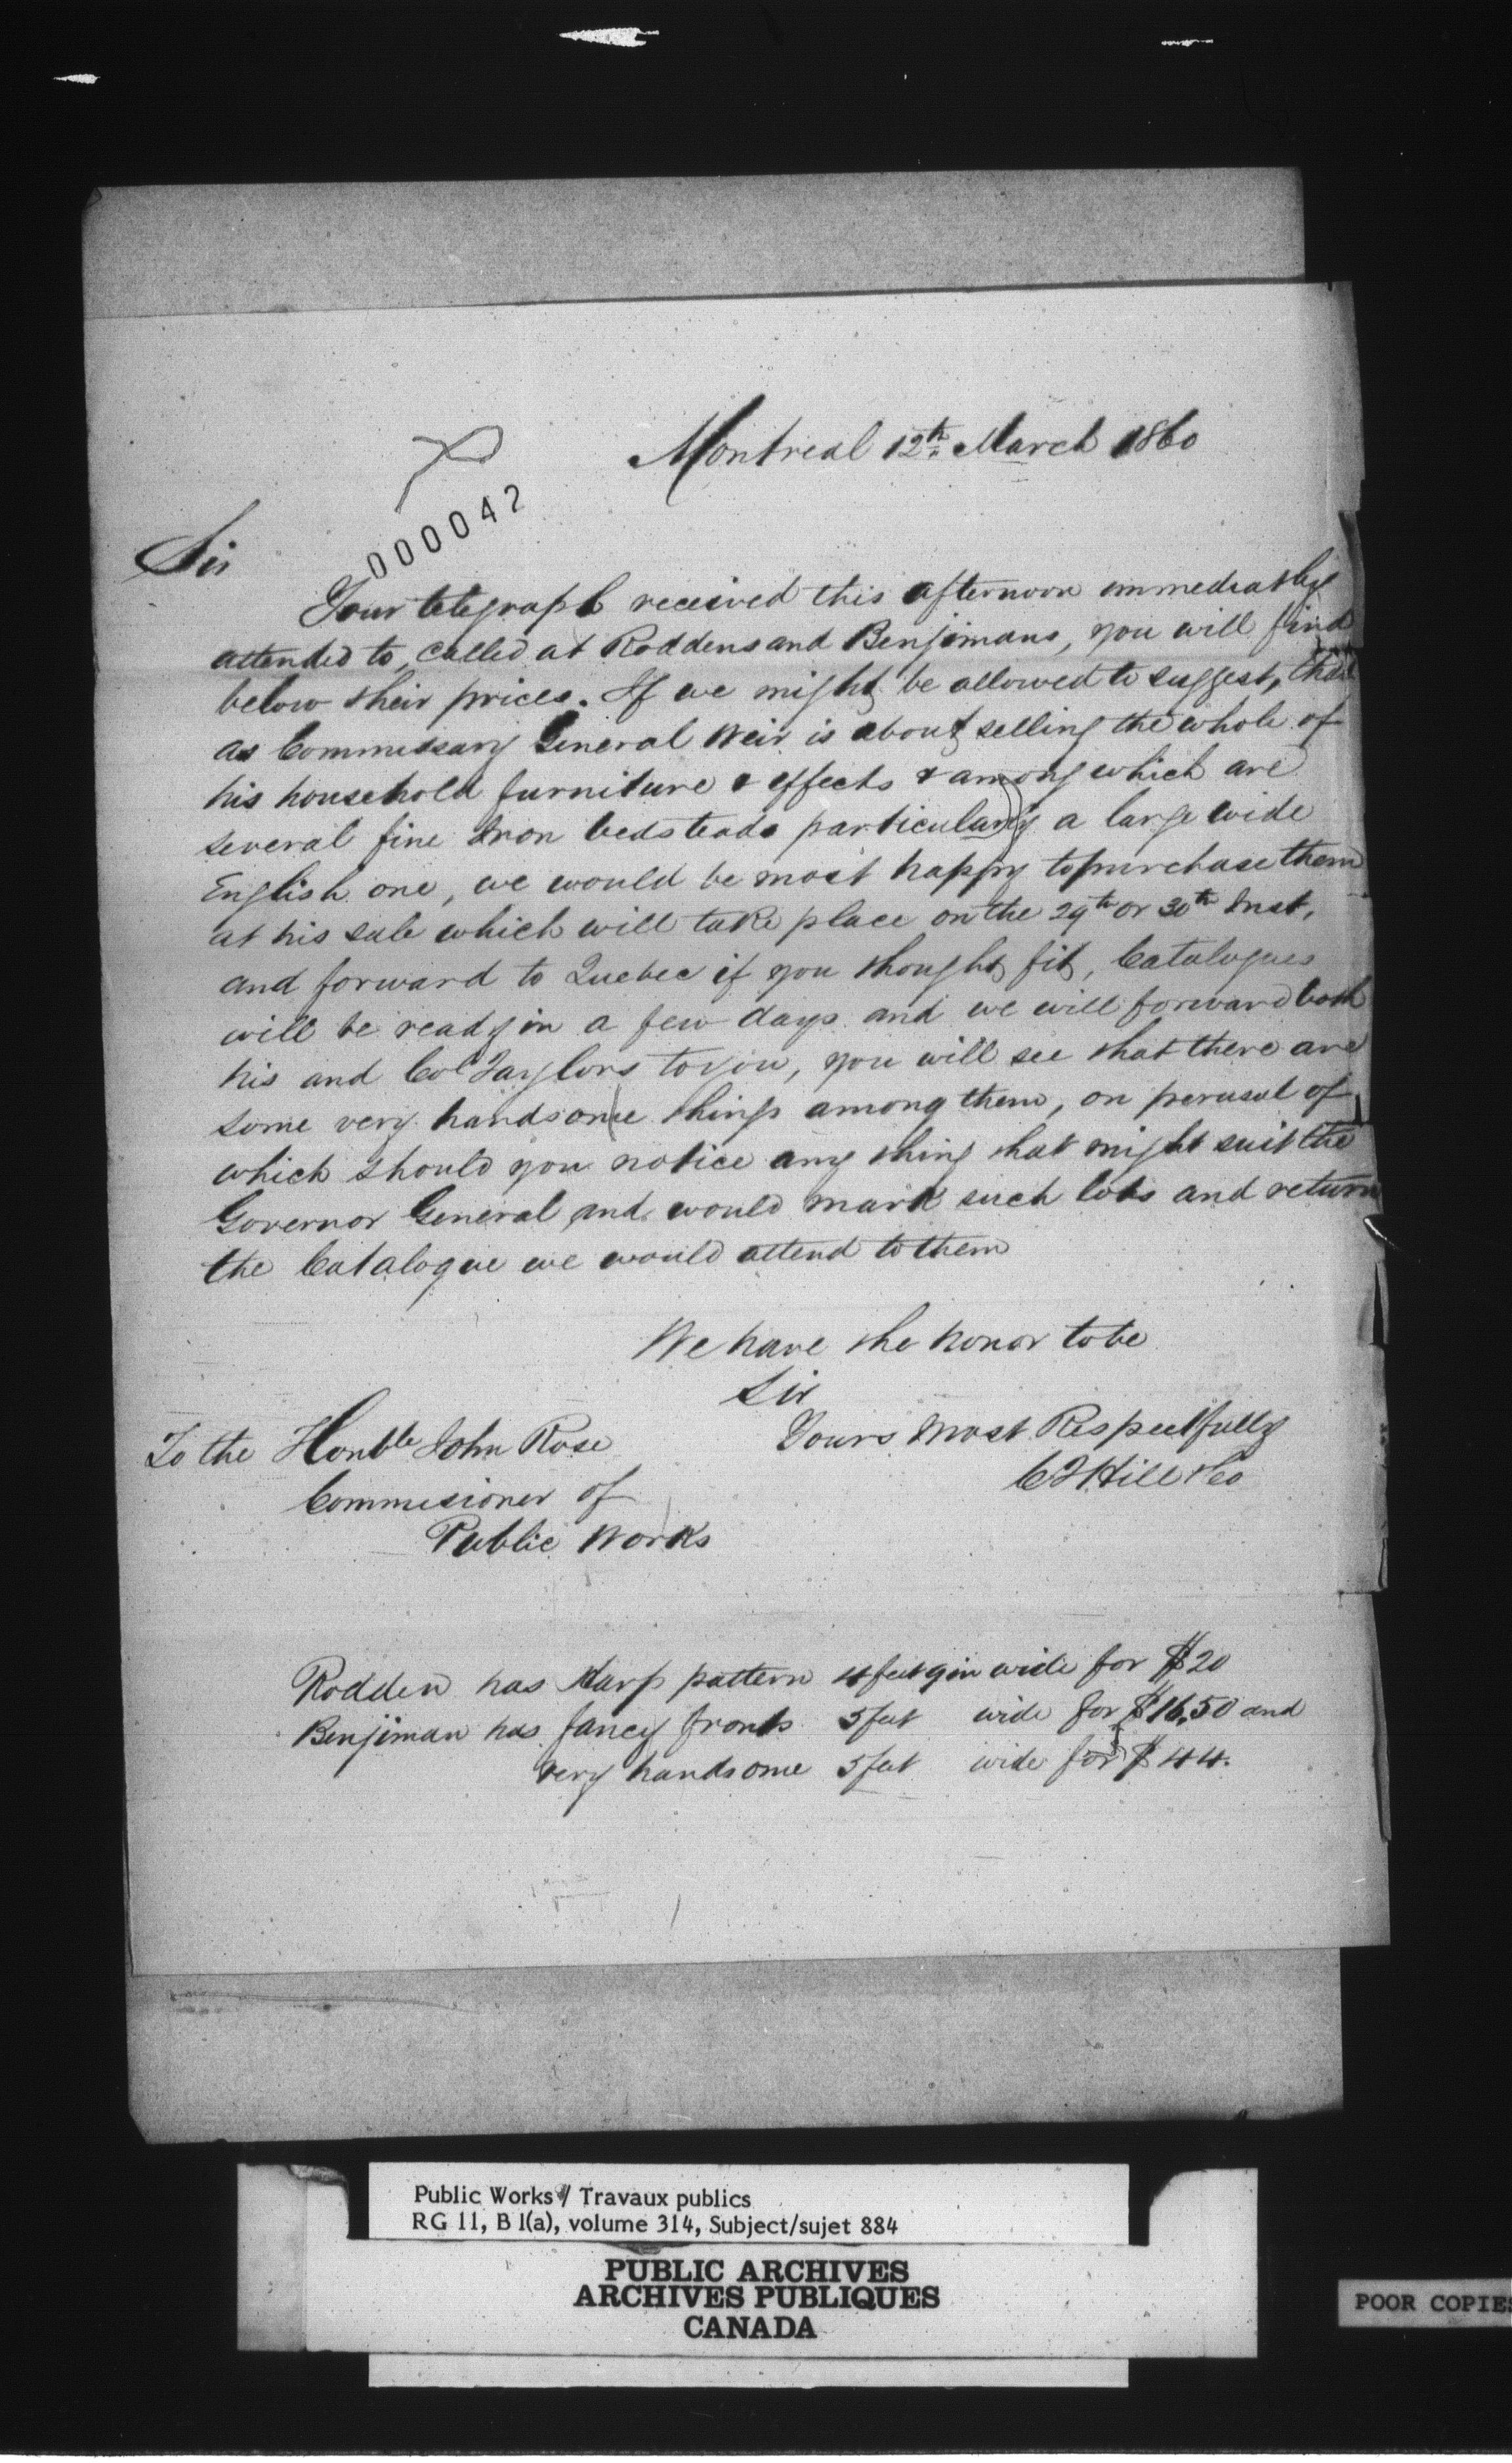 Montreal 12th March 1860
000042
Sir
Your telegraph received this afternoon immediatly
attended to, called at Roddens and Benjimans, you will find
below their prices. If we might be allowed to suggest, that
as Commissary General Weir is about selling the whole of
his household furniture & effects & among which are
several fine Iron bedsteads particularly a large wide
English one, we would be most happy to purchase them
at his sale which will take place on the 29th or 30th Inst,
and forward to Quebec if you thought fit, Catalogues
will be ready in a few days and we will forward both
his and Col Taylors to you, you will see that there are
some very handsome things among them, on perusal of
which should you notice any thing that might suit the
Governor General and would mark such lots and return
the Catalogue we would attend to them
We have the honor to be
Sir
Yours Most Respectfully
C F Hill & Co
To the Honble John Rose
Commisioner of
Public Works
Rodden has Harp pattern 4 feet 9 in wide for $20
Benjiman has fancy fronts 5 feet wide for $16,50 and
very handsome 5 feet wide for $44.
Public Works / Travaux publics
RG 11, B 1(a), volume 314, Subject/sujet 884
PUBLIC ARCHIVES
ARCHIVES PUBLIQUES
CANADA
POOR COPIES